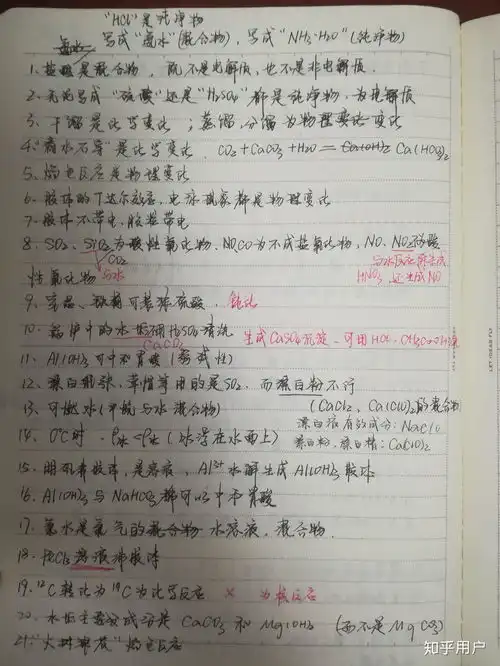 "HCl"是纯净物
氨水 写成"氨水"(混合物),写成"NH₃·H₂O"(纯净物)
1、盐酸是混合物,既不是电解质,也不是非电解质.
2、无论写成"硫酸"还是"H₂SO₄"都是纯净物,为电解质
3、干馏是化学变化;蒸馏,分馏为物理变化 变化
4、"滴水石穿"是化学变化. CO₂+CaCO₃+H₂O= Ca(OH)₂ Ca(HCO₃)₂
5、焰色反应是物理变化
6、胶体的丁达尔效应,电泳现象都是物理变化
7、胶体不带电,胶粒带电
8、SO₂、SiO₂为酸性氧化物、NO,CO为不成盐氧化物,NO、NO₂不酸
CO₂ 与水反应除生成
性氧化物 与水 HNO₃,还生成NO
9、常温、铁制可装浓硫酸. 钝化
10、锅炉中的水垢不用H₂SO₄清洗 生成CaSO₄沉淀、可用HCl、CH₃COOH
CaCO₃
11、Al(OH)₃可中和胃酸(弱碱性)
12、漂白纸张、草帽等用的是SO₂.而漂白粉不行
13、可燃冰(甲烷与水混合物) (CaCl₂、Ca(ClO)₂的混合物
漂白液有效成分:NaClO
14、0℃时 ρ冰<ρ水(冰浮在水面上) 漂白粉、漂白精:Ca(ClO)₂
15、明矾 胶体,是溶液,Al³⁺水解生成Al(OH)₃胶体
16、Al(OH)₃与NaHCO₃都可以中和胃酸
17、氯水是氯气的混合物 水溶液,混合物.
18、FeCl₃溶液 胶体
19、¹²C转化为¹⁴C为化学反应 × 为核反应
20、水垢主要成分是CaCO₃和Mg(OH)₂ (而不是MgCO₃)
21、"火树银花"焰色反应
知乎用户